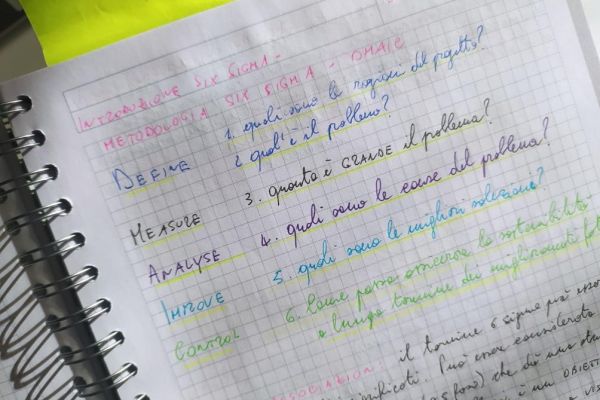 INTRODUZIONE SIX SIGMA -
METODOLOGIA SIX SIGMA - DMAIC
DEFINE 1. quali sono le ragioni del progetto?
2 qual'è il problema?
MEASURE 3. quanto è GRANDE il problema?
ANALYSE 4. quali sono le cause del problema?
IMPROVE 5. quali sono le migliori soluzioni?
CONTROL 6. Come posso assicurare la sostenibilità
a lungo termine dei miglioramenti
il termine 6 sigma può
significati. Può essere considerato
che dà una
è un